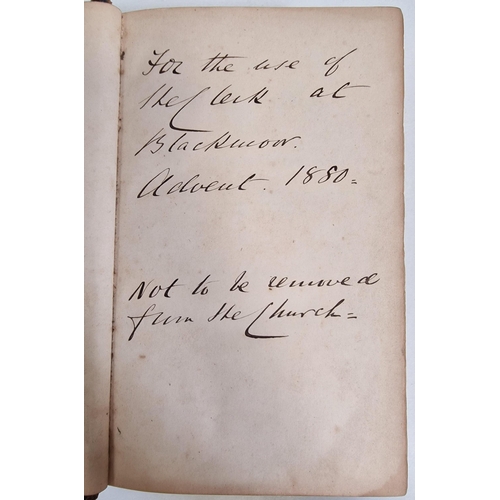 For the use of
the Clerk at
Blackmoor.
Advent. 1880=
Not to be removed
from the Church=